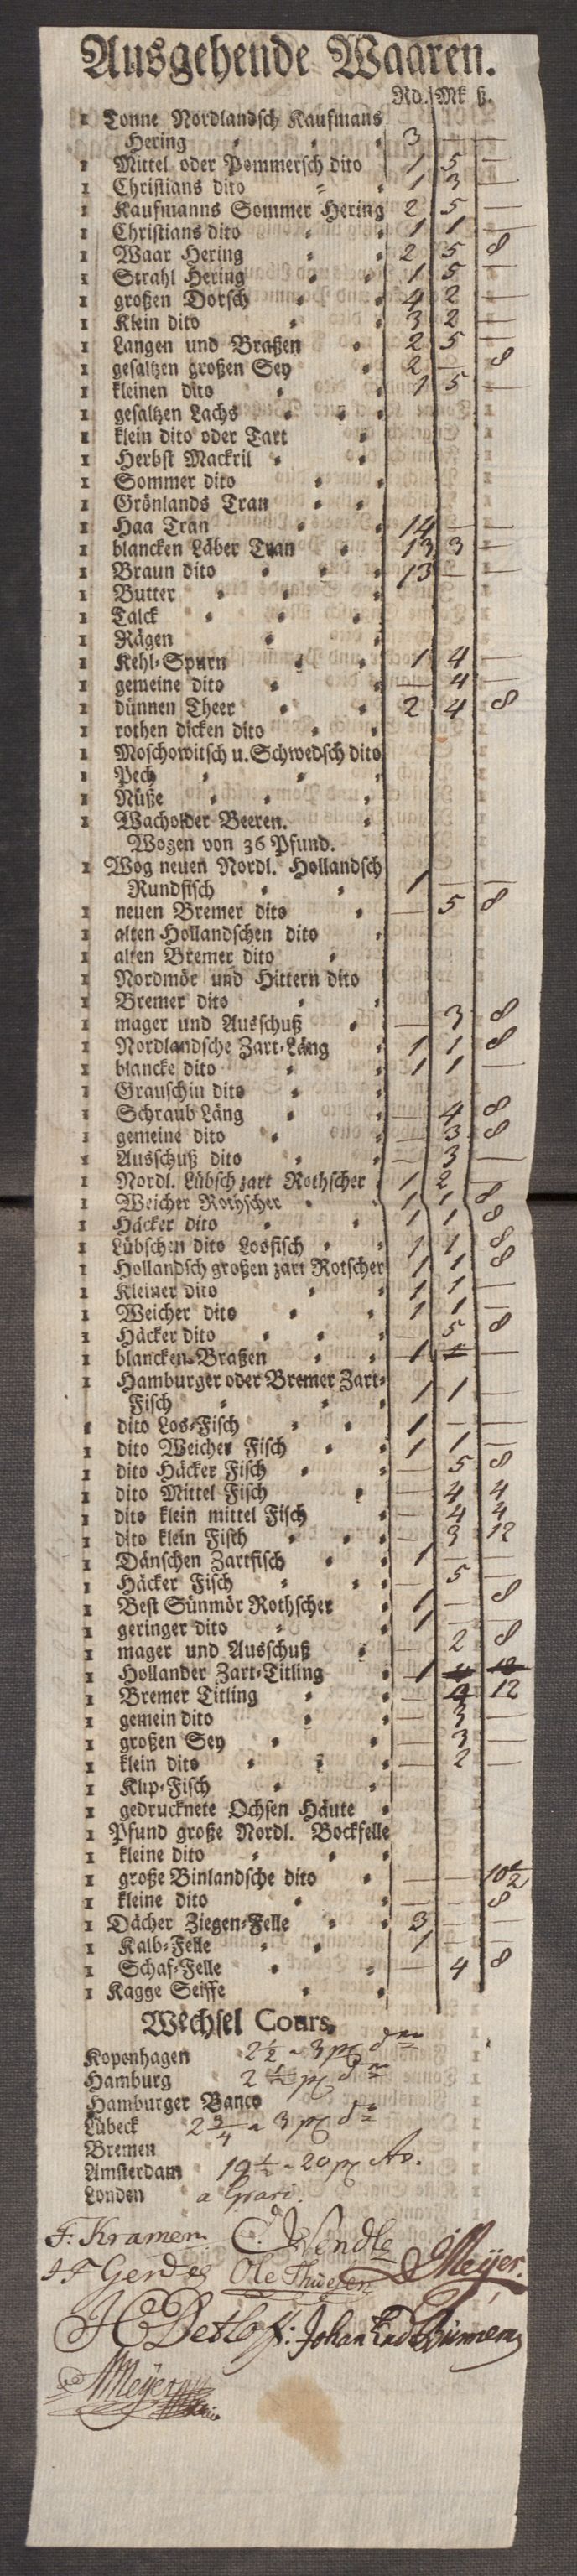 Ausgehende Waaren.
Rd. Mk ß.
1 Tonne Nordlandsch Kaufmans
Hering 3 — —
1 Mittel oder Pommersch dito 1 5 —
1 Christians dito 1 3 —
1 Kaufmanns Sommer Hering 2 5 —
1 Christians dito 1 1 —
1 Waar Hering 2 5 8
1 Strahl Hering 1 5 —
1 großen Dorsch 4 2 —
1 Klein dito 3 2 —
1 Langen und Braßen 2 5 —
1 gesaltzen großen Sey 2 — 8
1 kleinen dito 1 5 —
1 gesaltzen Lachs
1 klein dito oder Tart
1 Herbst Mackril
1 Sommer dito
1 Grönlands Tran
1 Haa Tran 14 — —
1 blancken Läber Tran 13 3 —
1 Braun dito 13 — —
1 Butter
1 Talck
1 Rägen
1 Kehl-Spurn 1 4 —
1 gemeine dito — 4 —
1 dünnen Theer 2 4 8
1 rothen dicken dito
1 Moschowitsch u. Schwedsch dito
1 Pech
1 Nüße
1 Wacholder Beeren.
Wogen von 36 Pfund.
1 Wog neuen Nordl. Hollandsch
Rundfisch 1 — —
1 neuen Bremer dito — 5 8
1 alten Hollandschen dito
1 alten Bremer dito
1 Nordmör und Hittern dito
1 Bremer dito
1 mager und Ausschuß — 3 8
1 Nordlandsche Zart-Läng 1 1 8
1 blancke dito 1 1 —
1 Grauschin dito
1 Schraub Läng — 4 8
1 gemeine dito — 3 8
1 Ausschuß dito — 3 —
1 Nordl. Lübsch zart Rothscher 1 2 —
1 Weicher Rothscher 1 1 8
1 Häcker dito 1 1 8
1 Lübschen dito Losfisch 1 1 8
1 Hollandsch großen zart Rotscher 1 1 8
1 Kleiner dito 1 1 —
1 Weicher dito 1 1 —
1 Häcker dito — 5 8
1 blancken-Braßen 1 —
1 Hamburger oder Bremer Zart-
Fisch 1 1 —
1 dito Los-Fisch 1 — —
1 dito Weicher Fisch 1 1 —
1 dito Häcker Fisch — 5 8
1 dito Mittel Fisch — 4 4
1 dito klein mittel Fisch — 4 4
1 dito klein Fisch — 3 12
1 Dänschen Zartfisch 1 — —
1 Häcker Fisch — 5 —
1 Best Sünmör Rothscher 1 — 8
1 geringer dito 1 — —
1 mager und Ausschuß — 2 8
1 Hollander Zart-Titling 1
1 Bremer Titling — 4 12
1 gemein dito — 3 —
1 großen Sey — 3 —
1 klein dito — 2 —
1 Klip-Fisch
1 gedrucknete Ochsen Häute
1 Pfund große Nordl. Bockfelle
1 kleine dito
1 große Binlandsche dito — — 10½
1 kleine dito — — 8
1 Dächer Ziegen-Felle 3 — —
1 Kalb-Felle 1 — —
1 Schaf-Felle — 4 8
1 Kagge Seiffe
Wechsel Cours.
Kopenhagen 2½ a 3 pC
Hamburg 2½ pC
Hamburger Banco
Lübeck 2¾ a 3 pC
Bremen
Amsterdam 19½ a 20 pC
Londen
F: Kramer. C. Wendle J Meÿer.
J F Gerdes Ole Thuesen
H Detloff: Johan
Meÿer